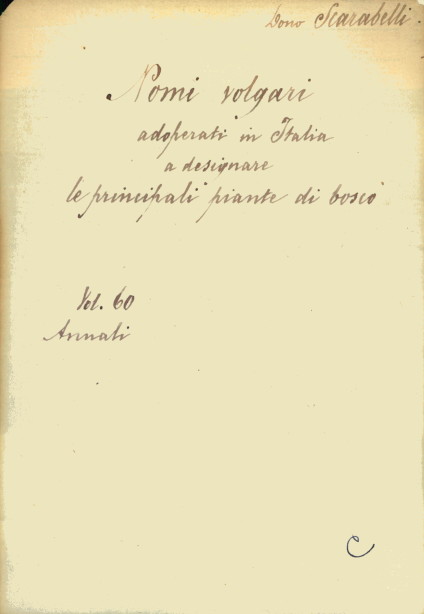 Dono Scarabelli.
Nomi volgari
adoperati in Italia
a designare
le principali piante di bosco
Vol. 60
Annali
C